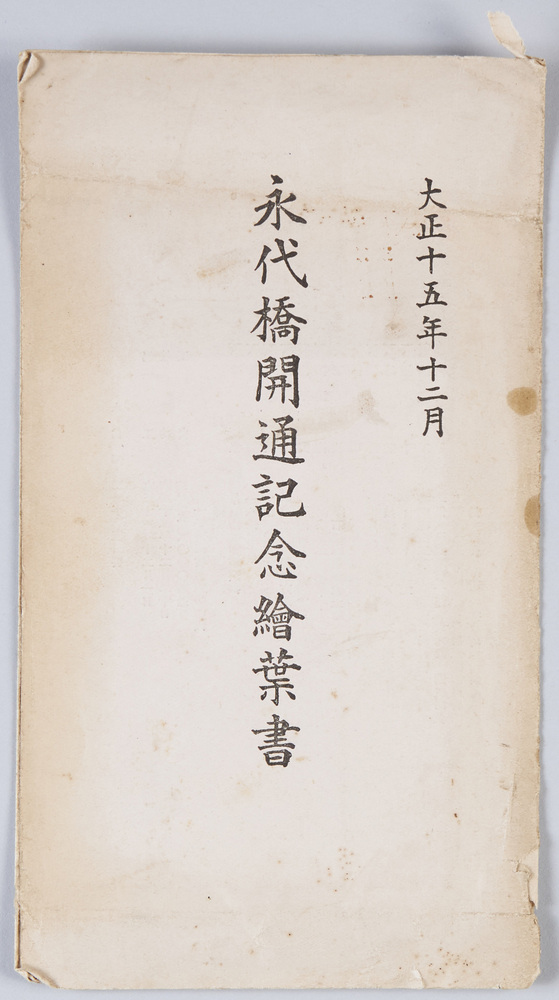 大正十五年十二月
永代橋開通記念繪葉書